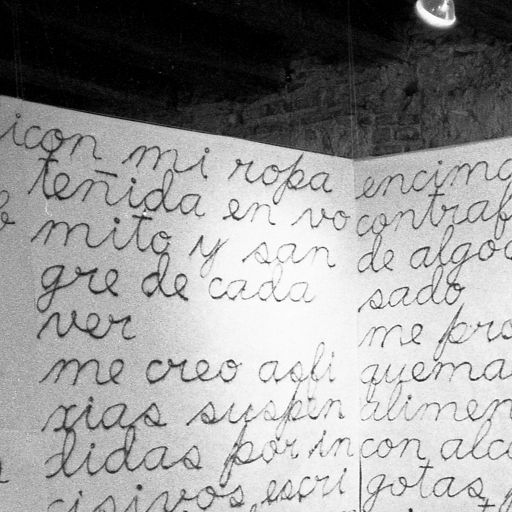 con mi ropa
teñida en vo
mito y san
gre de cada
ver
me creo asfi
xias suspen
didas por in
cisivos escri
encima
contra
de algo
sado
me pro
quema
alimen
con alco
gotas